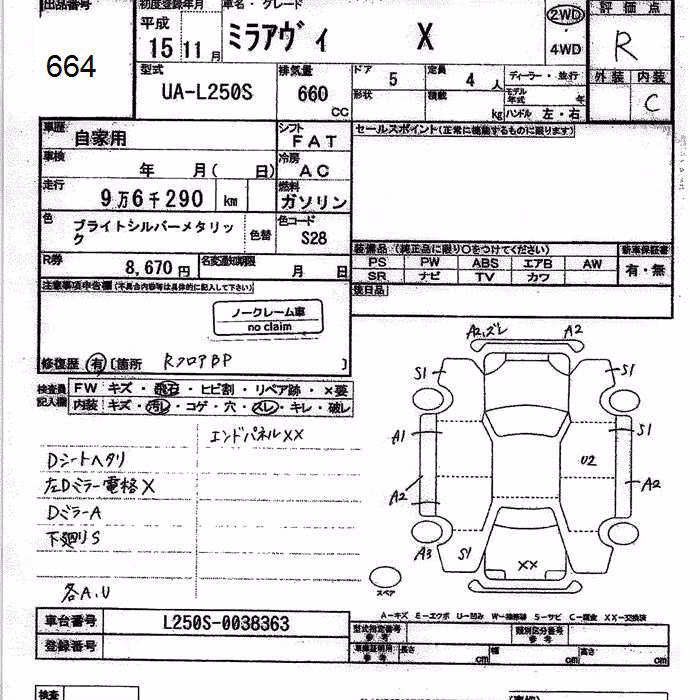 出品番号
664
初度登録年月
平成
15 11 月
車名・グレード
ミラアヴィ X
2WD
・
4WD
評価点
R
外装 内装
C
型式
UA-L250S
排気量
660
CC
ドア 5
定員 4 人
形状
積載 kg
ディーラー・並行
モデル年式 年
ハンドル 左・右
車歴
自家用
シフト
FAT
車検
年 月( 日)
冷房
AC
走行
9万6千290 km
燃料
ガソリン
色
ブライトシルバーメタリック
色替
色コード
S28
R券
8,670円
名変通知期限
月 日
セールスポイント(正常に機能するものに限ります)
装備品 (純正品に限り○をつけてください)
新車保証書
PS PW ABS エアB AW
SR ナビ TV カワ
有・無
後日品
注意事項申告欄(不具合内容等は具体的に記入して下さい)
ノークレーム車
no claim
修復歴 有 [箇所 RフロアBP ]
検査員記入欄
FW キズ・飛石・ヒビ割・リペア跡・×要
内装 キズ・汚レ・コゲ・穴・スレ・キレ・破レ
エンドパネルXX
Dシートヘタリ
左Dミラー電格X
DミラーA
下廻りS
各A,U
A2,ズレ A2
S1 S1
A1 S1
U2
A2 A2
A3 S1
XX
スペア
A－キズ E－エクボ U－凹み W－補修跡 S－サビ C－腐食 XX－交換済
車台番号
L250S-0038363
登録番号
型式指定番号
参考
類別区分番号
参考
車庫証明用
参考
長さ cm 幅 cm 高さ cm
検査